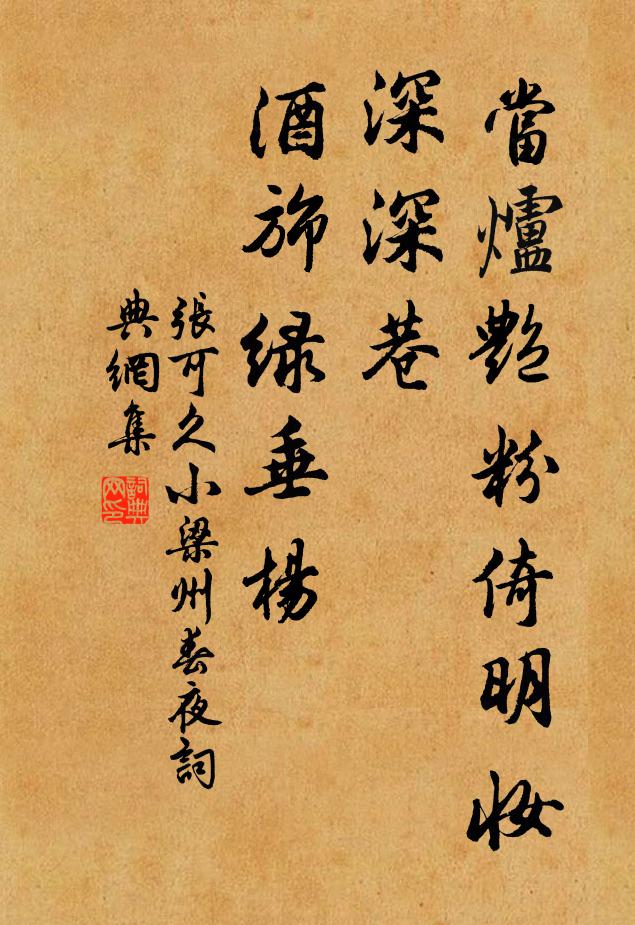 當爐艷粉倚明妝
深深巷
酒斾綠垂楊
張可久小梁州春夜詞
典網集
詞典網印